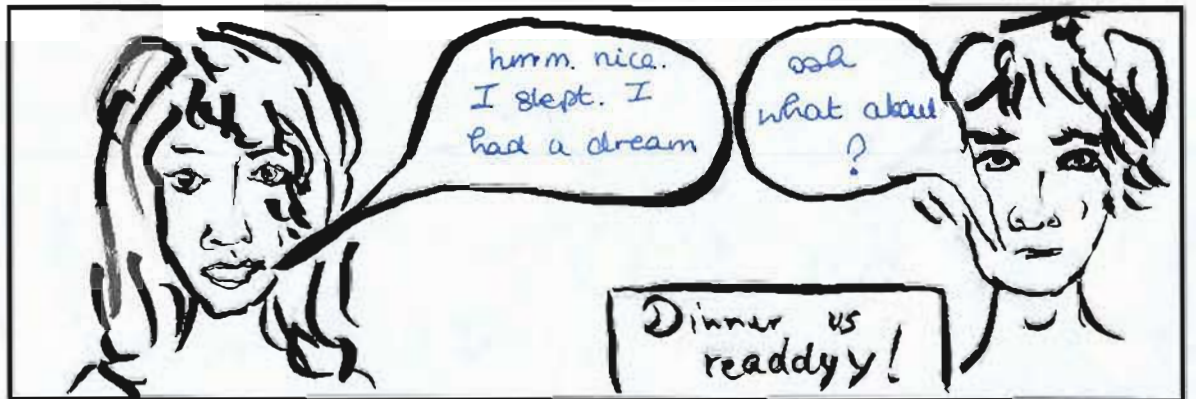 hmm. nice.
I slept. I
had a dream
ooh
what about
?
Dinner is
readdyy!